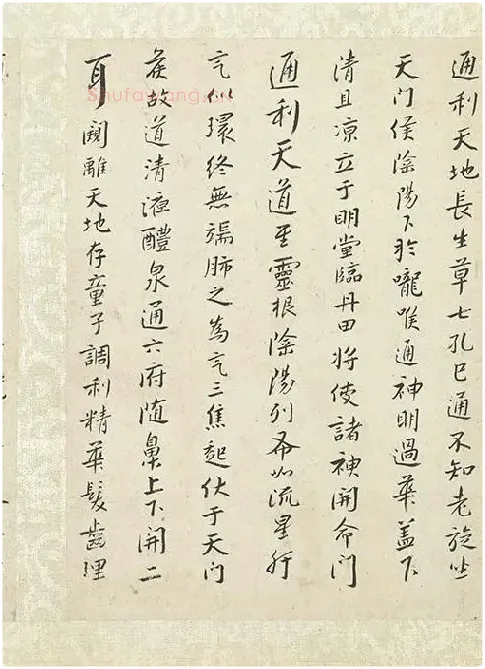 通利天地長生草七孔已通不知老旋坐
天门侯陰陽下於嚨喉通神明過華盖下
清且凉立于明堂臨丹田将使諸神開命门
通利天道至靈根陰陽列布如流星肝
气似環终無端肺之為气三焦起伏于天门
矦故道清液醴泉通六府随鼻上下開二
耳闚離天地存童子調利精華髮齒理
Shufawang.cn